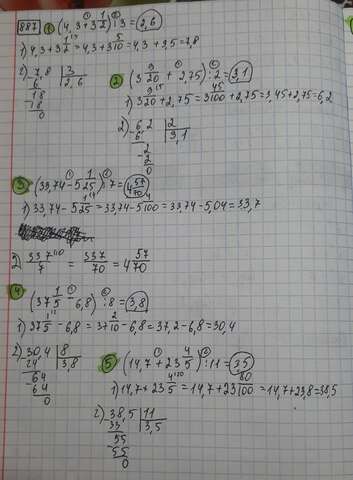 887 1 (4,3+3 1/2):3=2,6
1) 4,3+3 1/2=4,3+3 5/10=4,3+3,5=7,8
2) 7,8 | 3
6 | 2,6
18
18
0
2 (3 9/20 + 2,75):2=3,1
1) 3 9/20+2,75=3 45/100+2,75=3,45+2,75=6,2
2) 6,2 | 2
6 | 3,1
2
2
0
3 (33,74-5 1/25):7=4 57/70
1) 33,74-5 1/25=33,74-5 4/100=33,74-5,04=33,7
2) 33,7/7 = 337/70 = 4 57/70
4 (37 1/5-6,8):8=3,8
1) 37 1/5-6,8=37 2/10-6,8=37,2-6,8=30,4
2) 30,4 | 8
24 | 3,8
64
64
0
5 (14,7+23 4/5):11=35
1) 14,7+23 4/5=14,7+23 80/100=14,7+23,8=38,5
2) 38,5 | 11
33 | 3,5
55
55
0